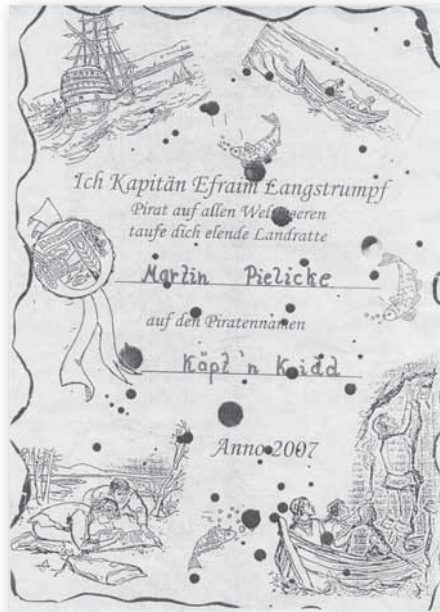 Ich Kapitän Efraim Langstrumpf
Pirat auf allen Weltmeeren
taufe dich elende Landratte
Martin Pielicke
auf den Piratennamen
Käpt'n Kidd
Anno 2007